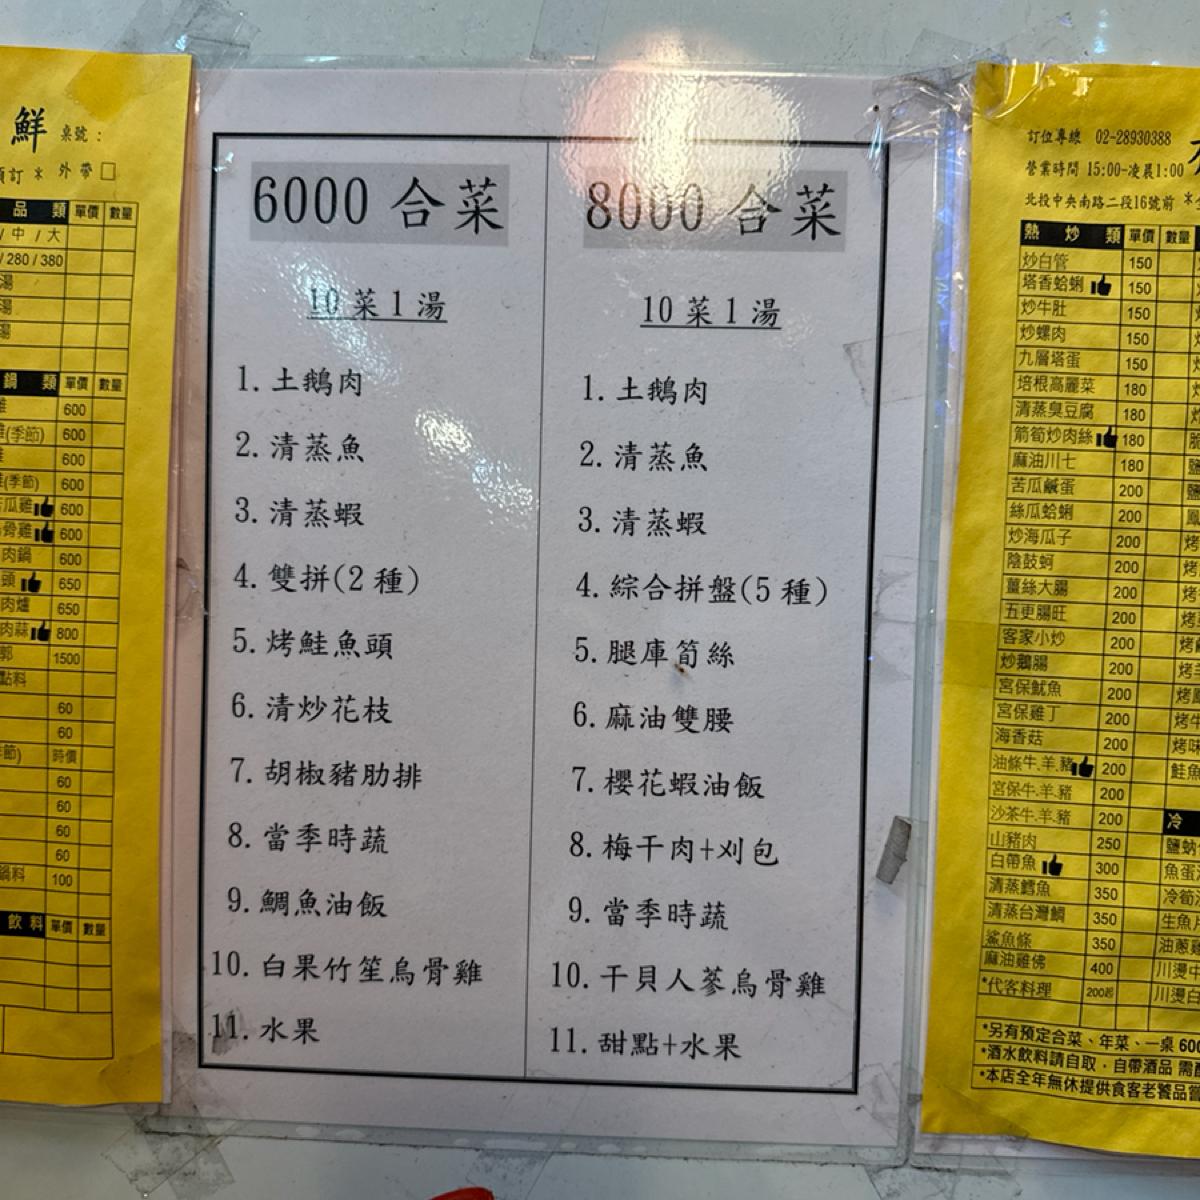 鮮 桌號：
預訂 * 外帶 □
品 類 單價 數量
/ 中 / 大
/ 280 / 380
湯
湯
湯
鍋 類 單價 數量
雞 600
(季節) 600
600
(季節) 600
苦瓜雞 600
骨雞 600
肉鍋 600
頭 650
肉爐 650
肉蒜 800
1500
點料
60
60
時價
60
60
60
60
鍋料 100
飲料 單價 數量
6000 合菜
10 菜 1 湯
1. 土鵝肉
2. 清蒸魚
3. 清蒸蝦
4. 雙拼(2 種)
5. 烤鮭魚頭
6. 清炒花枝
7. 胡椒豬肋排
8. 當季時蔬
9. 鯛魚油飯
10. 白果竹笙烏骨雞
11. 水果
8000 合菜
10 菜 1 湯
1. 土鵝肉
2. 清蒸魚
3. 清蒸蝦
4. 綜合拼盤(5 種)
5. 腿庫筍絲
6. 麻油雙腰
7. 櫻花蝦油飯
8. 梅干肉+刈包
9. 當季時蔬
10. 干貝人蔘烏骨雞
11. 甜點+水果
訂位專線 02-28930388
營業時間 15:00-凌晨1:00
北投中央南路二段16號前
熱炒類 單價 數量
炒白管 150
塔香蛤蜊 150
炒牛肚 150
炒螺肉 150
九層塔蛋 150
培根高麗菜 180
清蒸臭豆腐 180
箭筍炒肉絲 180
麻油川七 180
苦瓜鹹蛋 200
絲瓜蛤蜊 200
炒海瓜子 200
陰鼓蚵 200
薑絲大腸 200
五更腸旺 200
客家小炒 200
炒鵝腸 200
宮保魷魚 200
宮保雞丁 200
海香菇 200
油條牛.羊.豬 200
宮保牛.羊.豬 200
沙茶牛.羊.豬 200
山豬肉 250
白帶魚 300
清蒸鱈魚 350
清蒸台灣鯛 350
鯊魚條 350
麻油雞佛 400
*代客料理 200起
冷
魚蛋
油蔥雞
川燙中
川燙白
*另有預定合菜、年菜、一桌 600
*酒水飲料請自取，自帶酒品 需酌
*本店全年無休提供食客老饕品嘗